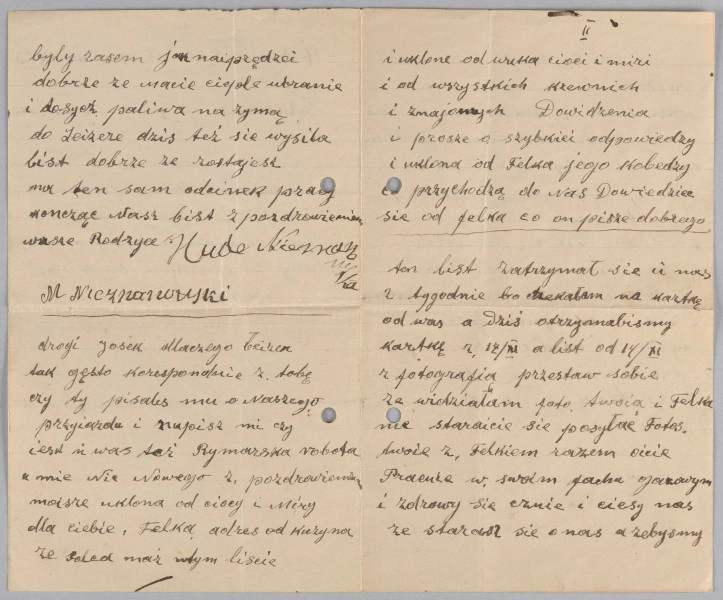 były razem jak najprędzej
dobrze ze macie ciepłe ubranie
i dosyć paliwa na zymą
do Leizere dzis też sie wysiła
list dobrze ze zostajesz
na ten sam odcinek pracy
kończąc Nasz list z pozdrowieniem
wasze Rodzyce Hude Nieznano
M Nieznanowski
drogi Josek dlaczego Leizer
tak gęsto korespondnie z. tobę
czy ty pisałes mu o Naszego
przyiazdu i napisz mi czy
iest ü was też Rymarska robota
u mie Nic Nowego z, pozdrowieniem
moisze uklona od ciocy i Miry
dla ciebie, Felka, adres od Kuzyna
ze maż w tym liscie
II
i uklone od wuka cioci i miri
i od wszystkich krewnich
i znajomych Dowidzenia
i prosze o szybkiei odpowiedzy
i uklona od Felka jego Kobedzy
co przychodzą do Nas Dowiedziec
sie od felka co on pisze dobrego
ten list zatrzymał się ü nas
2 tygodnie bo czekałam na kartkę
od was a dziś otrzymalismy
kartkę z, 12/XI a list od 14/XI
z fotografią przestaw sobie
ze widziałam foto, twoia i Felka
nie staraicie się posyłać Fotos,
twoie z, Felkiem razem
w, swoim fachu
i zdrowy się cznie i ciesy nas
ze starasz się o nas azebysmy